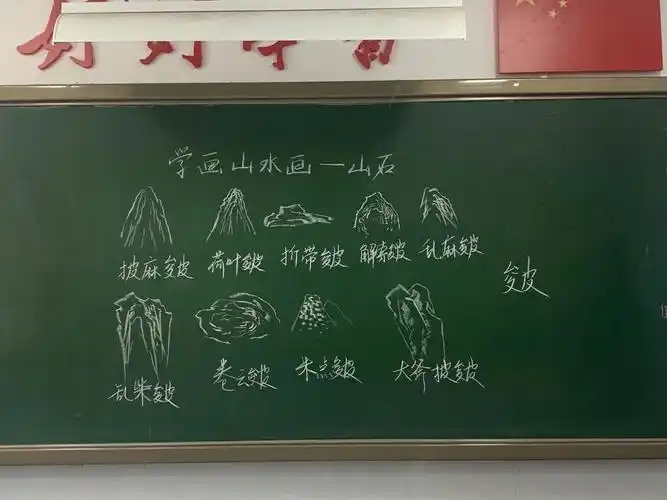 好好学习
学画山水画一山石
披麻皴 荷叶皴 折带皴 解索皴 乱麻皴
皴
乱柴皴 卷云皴 米点皴 大斧披皴